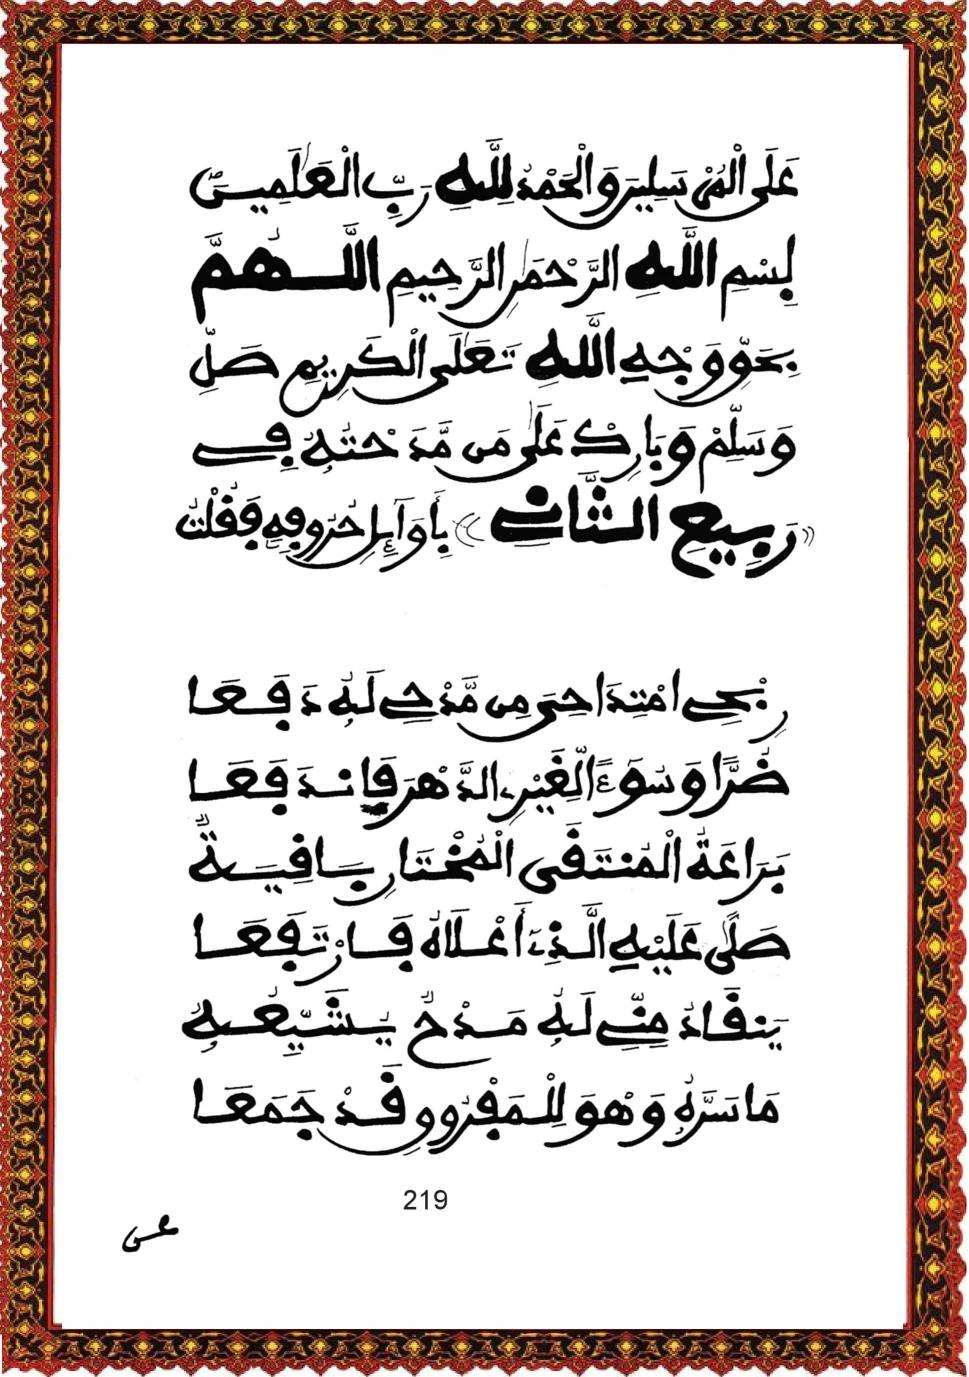 عَلَى الْمُرْسَلِينَ وَالْحَمْدُ لِلَّهِ رَبِّ الْعَٰلَمِينَ
بِسْمِ اللَّهِ الرَّحْمَٰنِ الرَّحِيمِ اللَّهُمَّ
بِحَقِّ وَجْهِ اللَّهِ تَعَٰلَى الْكَرِيمِ صَلِّ
وَسَلِّمْ وَبَارِكْ عَلَى مَن مَّدَحْتُهُ فِي
«رَبِيعِ الثَّانِي» بِأَوَآئِلِ حُرُوفِهِ فَقُلْتُ
رِبْحِي امْتِدَاحِيَ مِن مَّدْحِي لَهُ دَفَعَا
ضُرًّا وَسُوءًا لِغَيْرِي الدَّهْرَ فَانْدَفَعَا
بَرَاعَةُ الْمُنتَقَى الْمُخْتَارِ بَاقِيَةٌ
صَلَّى عَلَيْهِ الَّذِي أَعْلَاهُ فَارْتَفَعَا
يَنقَادُ مِنِّي لَهُ مَدْحٌ يُشَيِّعُهُ
مَا سَرَّهُ وَهْوَ لِلْمَفْرُوقِ قَدْ جَمَعَا
219